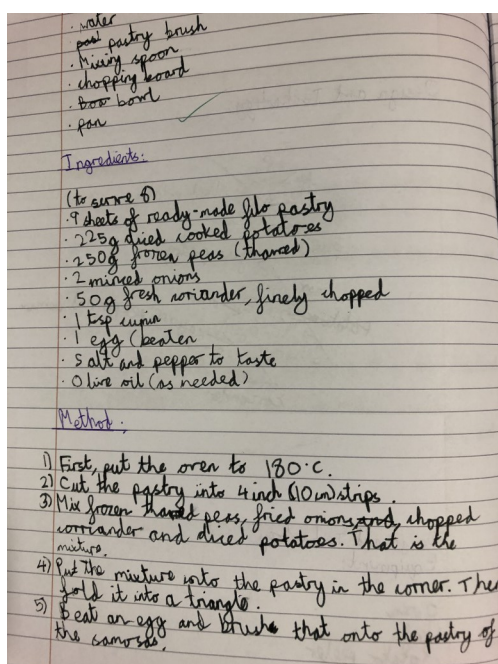 · water
pastry brush
· Mixing spoon
· chopping board
· bowl
· pan
Ingredients:
(to serve 8)
· 9 sheets of ready-made filo pastry
· 225g diced cooked potatoes
· 250g frozen peas (thawed)
· 2 minced onions
· 50g fresh coriander, finely chopped
· 1 tsp cumin
· 1 egg (beaten
· Salt and pepper to taste
· Olive oil (as needed)
Method:
1) First, put the oven to 180°C.
2) Cut the pastry into 4 inch (10cm) strips.
3) Mix frozen thawed peas, fried onions, and, chopped
corriander and diced potatoes. That is the
mixture.
4) Put the mixture onto the pastry in the corner. Then
fold it into a triangle.
5) Beat an egg and brush that onto the pastry of
the samosas.